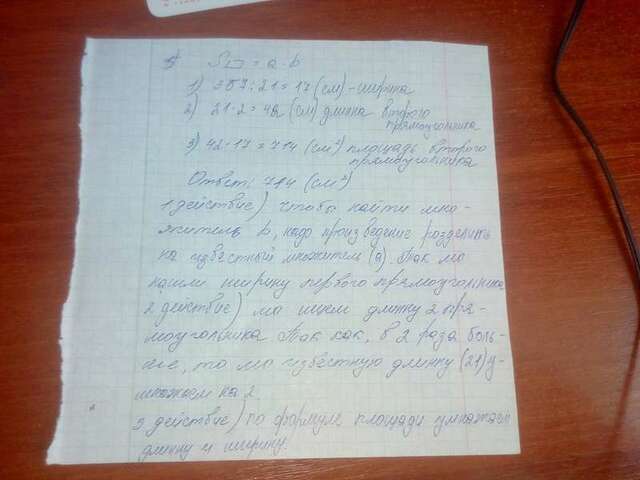 S▭ = a · b
1) 357 : 21 = 17 (см) - ширина
2) 21 · 2 = 42 (см) длина второго
прямоугольника
3) 42 · 17 = 714 (см²) площадь второго
прямоугольника
Ответ: 714 (см²)
1 действие) чтобы найти мно-
житель b, надо произведение разделить
на известный множитель (a). Так мы
нашли ширину первого прямоугольника
2 действие) мы ищем длинну 2 пря-
моугольника. Так как, в 2 раза боль-
ше, то мы известную длинну (21) у-
множаем на 2.
3 действие) по формуле площади умножаем
длинну и ширину.